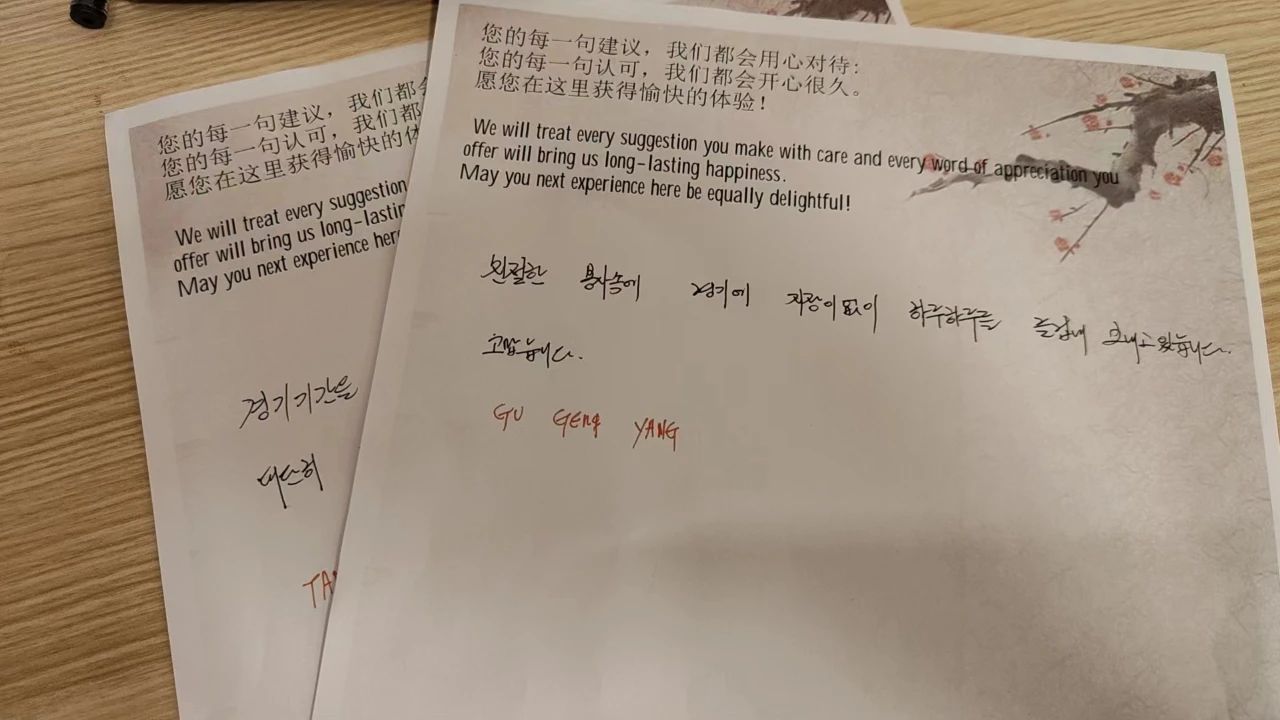 您的每一句建议，我们都会用心对待：
您的每一句认可，我们都会开心很久。
愿您在这里获得愉快的体验！
We will treat every suggestion you make with care and every word of appreciation you
offer will bring us long-lasting happiness.
May you next experience here be equally delightful!
친절한 봉사속에 경기에 지장이 없이 하루하루를 즐겁게 보내고 왔습니다.
고맙습니다.
GU GENG YANG
您的每一句建议，我们都会
您的每一句认可，我们都
愿您在这里获得愉快的体
We will treat every suggestion
offer will bring us long-lastin
May you next experience her
경기기간을
따스히
TA